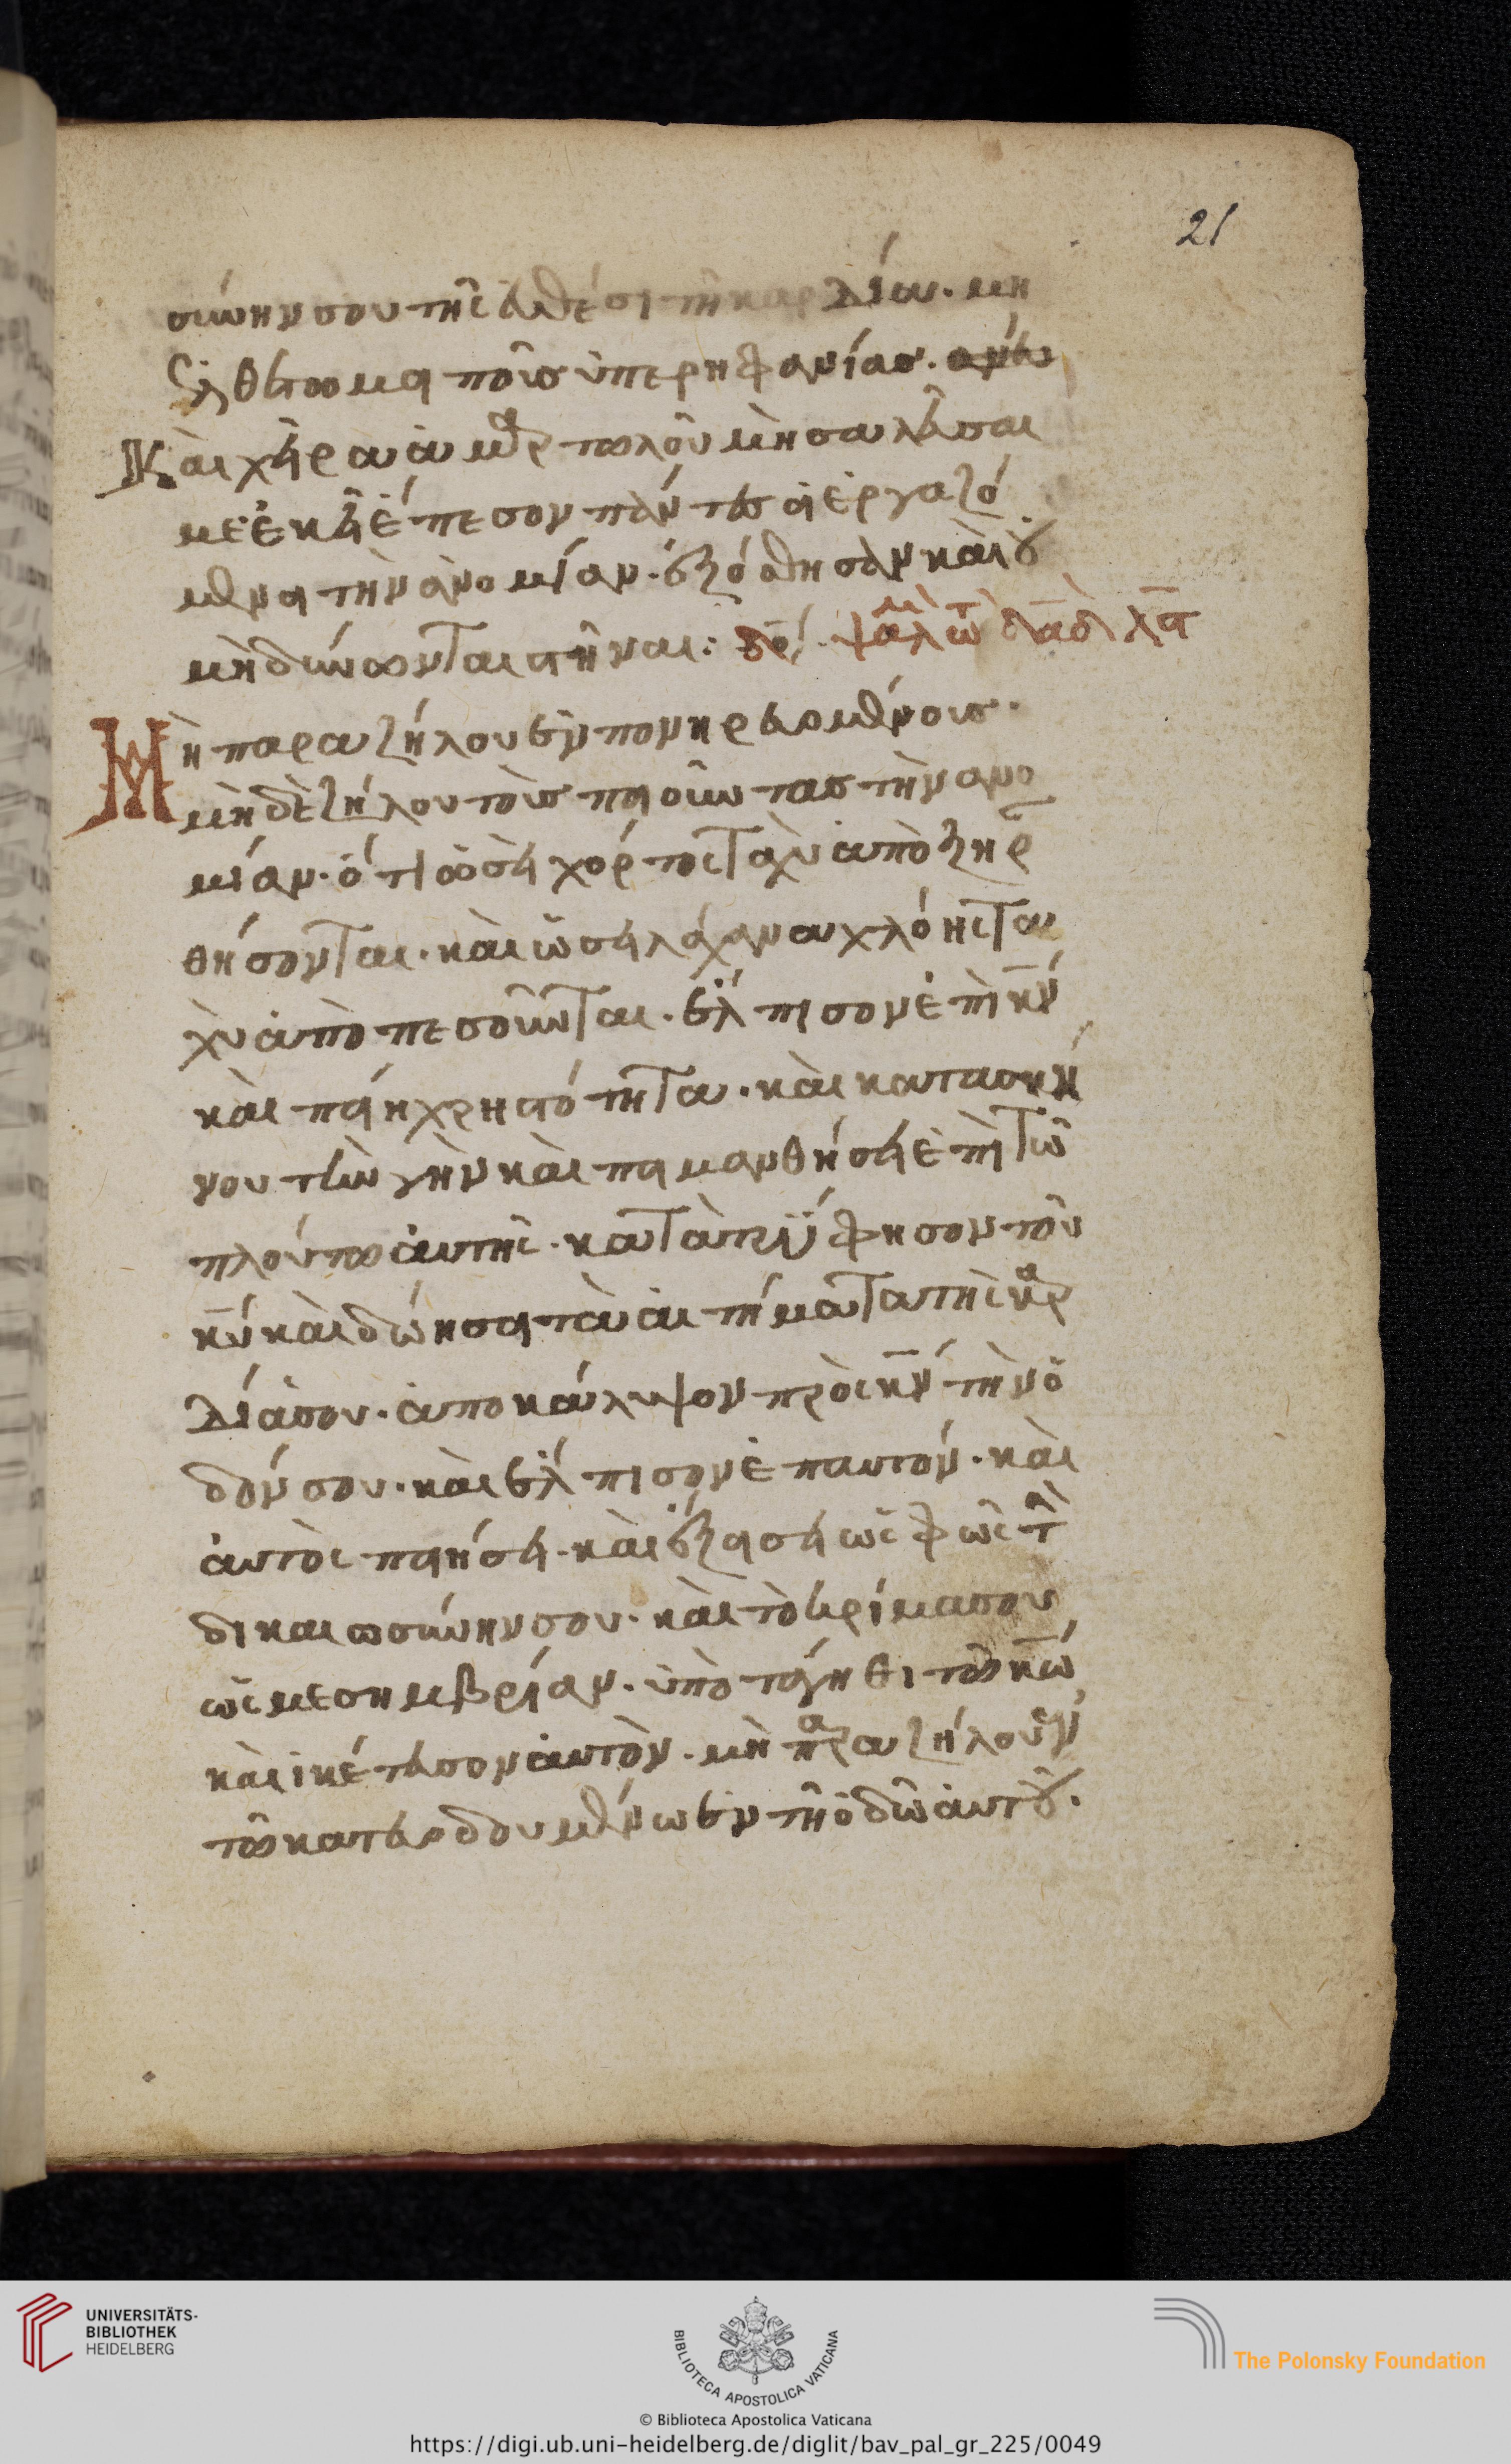 21
σύνην σου τῆς εὐθέσι τῇ καρδία. μὴ
ἐλθέτω μοι ποὺς ὑπερηφανίας.
Καὶ χεὶρ ἁμαρτωλοῦ μὴ σαλεῦσαι
με ἐκεῖ ἔπεσον πάντες οἱ ἐργαζό
μενοι τὴν ἀνομίαν. ἐξόσθησαν καὶ οὐ
μὴ δύνωνται στῆναι: δό/. ψαλμ τῶ δαδ λϛ
Μὴ παραζήλου ἐν πονηρευομένοις.
μὴ δὲ ζήλου τοὺς ποιοῦντας τὴν ἀνο
μίαν. ὅτι ὡσεὶ χόρτος ταχὺ ἀποξηρ
θήσονται. καὶ ὡσεὶ λάχανα χλόης τα
χὺ ἀποπεσοῦνται. ἔλπισον ἐπὶ κν
καὶ ποίει χρηστότητα. καὶ κατασκή
νου τὴν γῆν καὶ ποιμανθήσει ἐπὶ τῶ
πλούτω αὐτῆς. κατατρύφησον τοῦ
κυ καὶ δώησοι τὰ αἰτήματα τῆς καρ
δίας σου. ἀποκάλυψον πρὸς κν τὴν ὁ
δόν σου. καὶ ἔλπισον ἐπαυτόν. καὶ
αὐτὸς ποιήσει. καὶ ἐξοίσει ὡς φῶς τὴν
δικαιωσύνην σου. καὶ τὸ κρίμα σου
ὡς μεσημβρίαν. ὑποτάγηθι τῶ κω
καὶ ἱκέτευσον αὐτὸν. μὴ παραζήλου ἐν
τῶ κατευοδουμένω ἐν τῇ ὁδῶ αὐτοῦ.
UNIVERSITÄTS-
BIBLIOTHEK
HEIDELBERG
BIBLIOTECA APOSTOLICA VATICANA
The Polonsky Foundation
© Biblioteca Apostolica Vaticana
https://digi.ub.uni-heidelberg.de/diglit/bav_pal_gr_225/0049